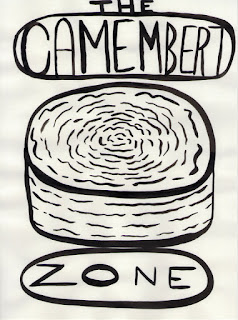 THE
CAMEMBERT
ZONE